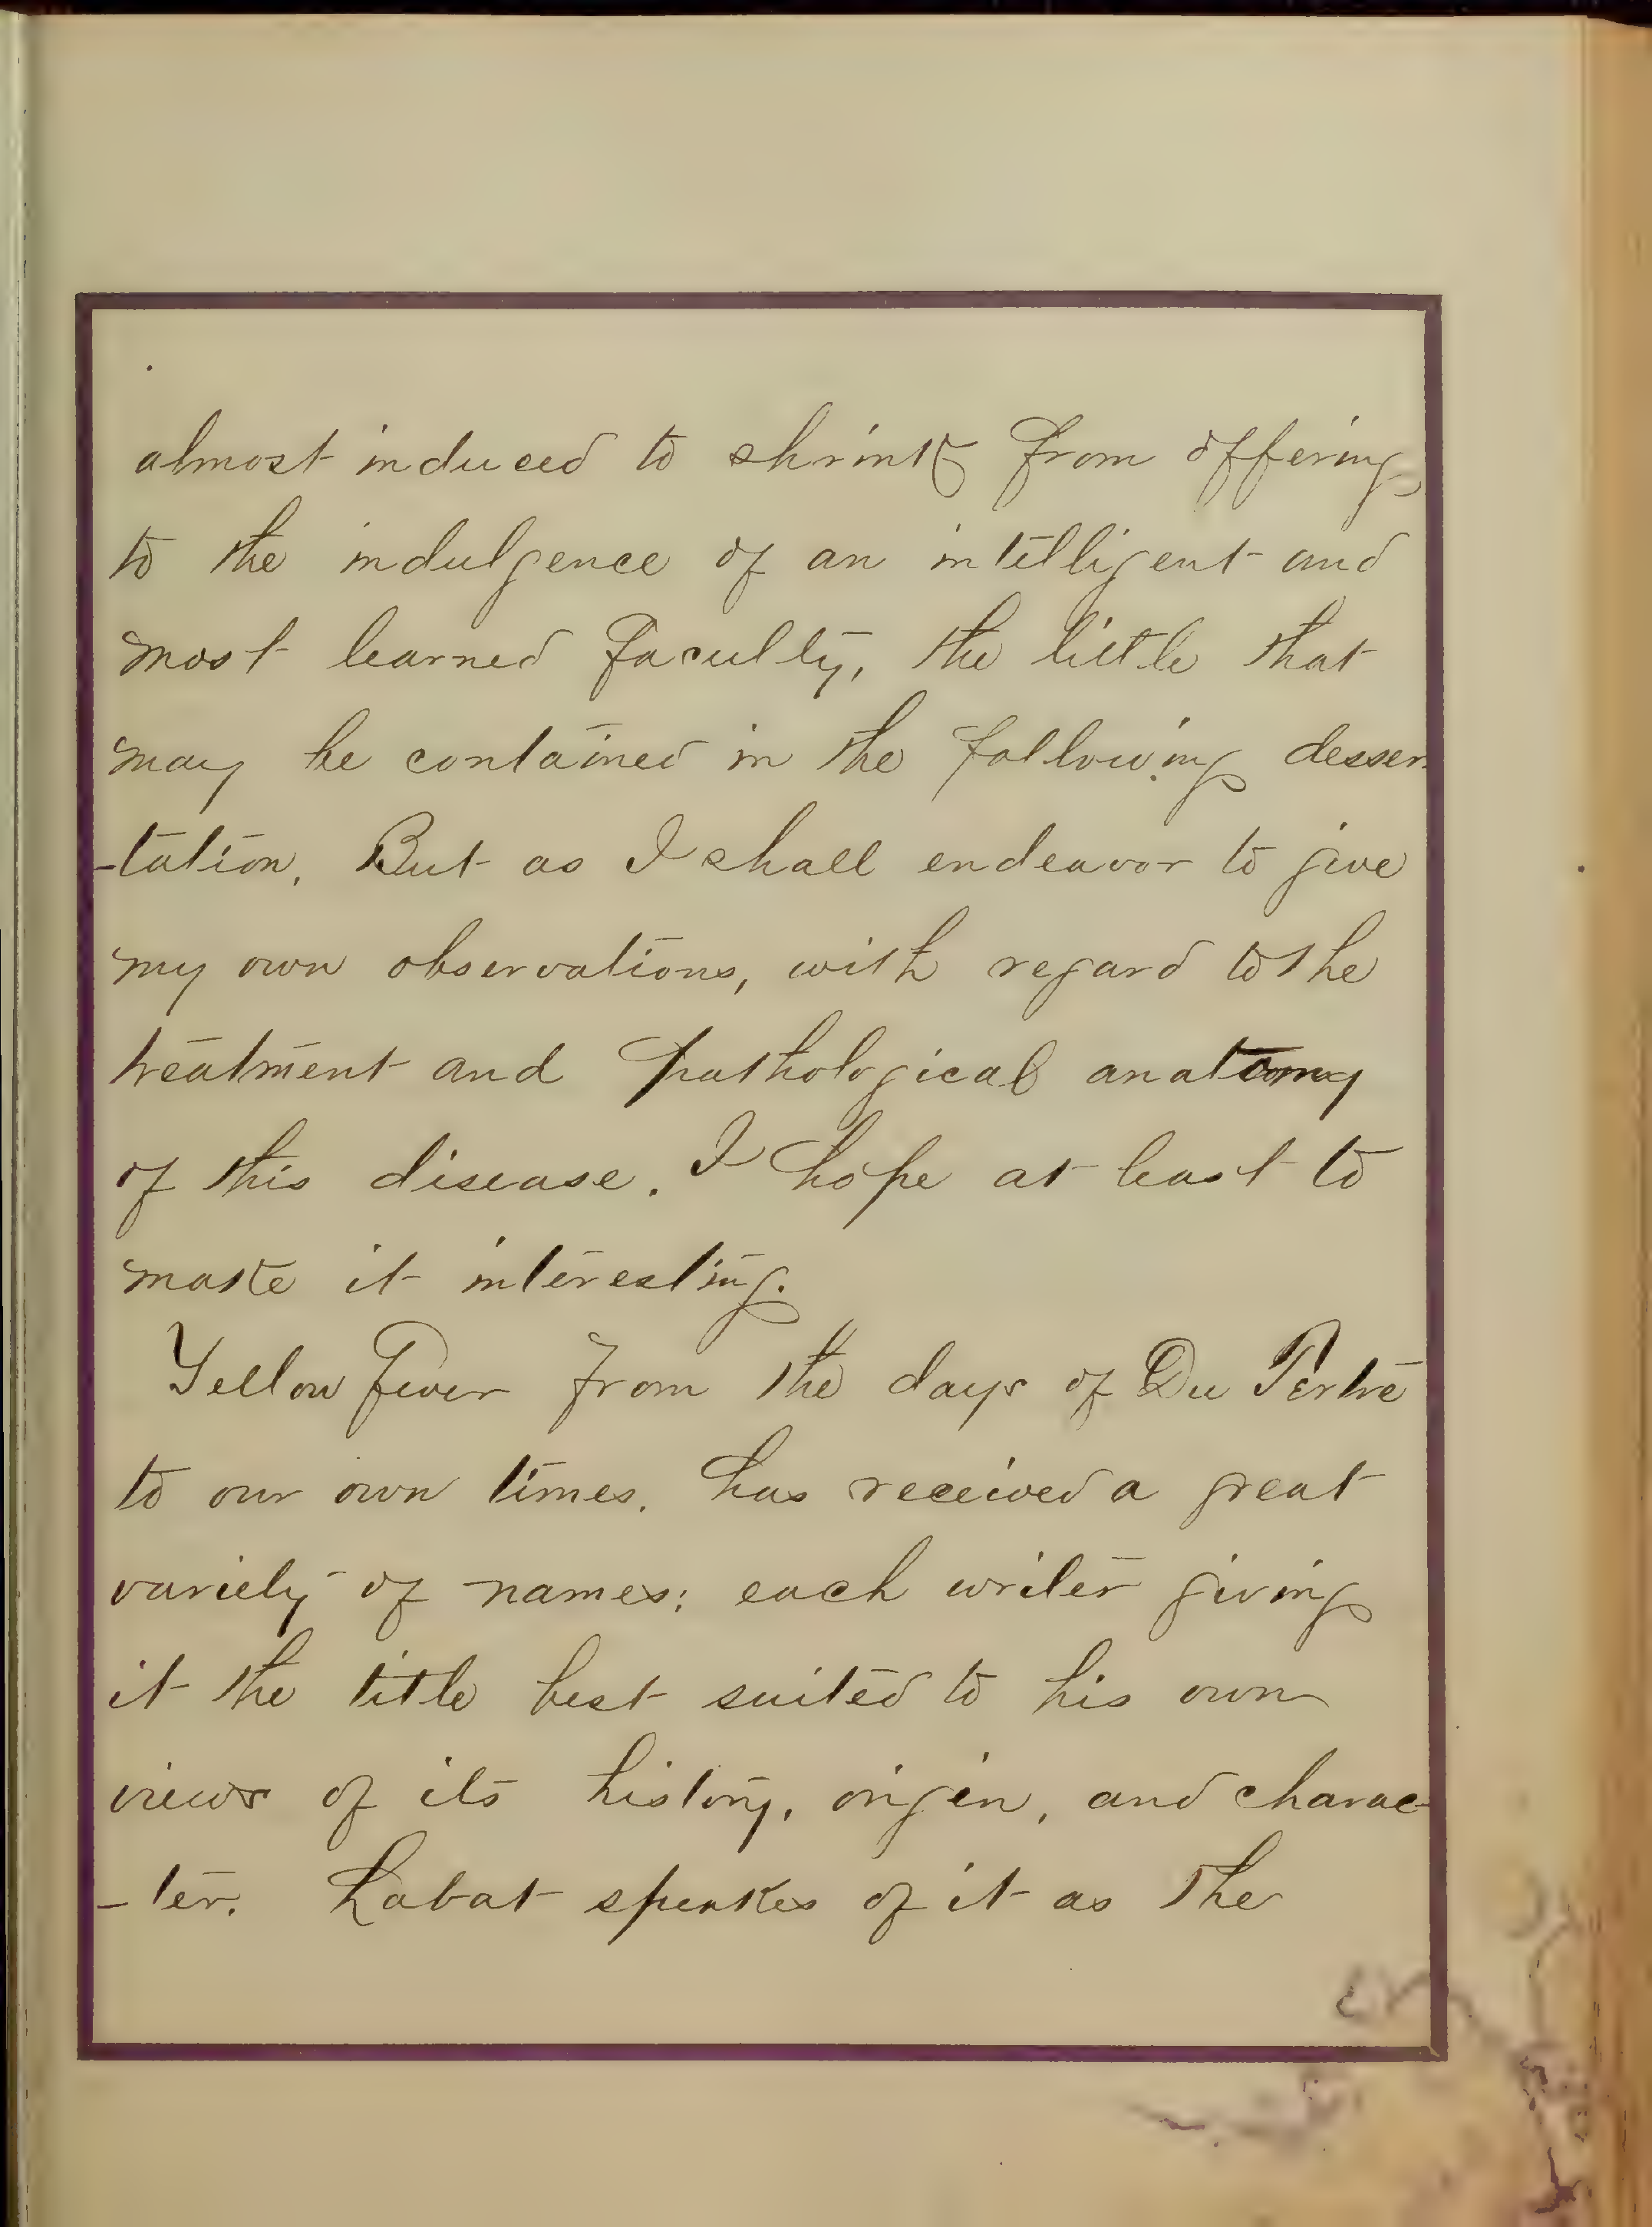 almost induced to shrink from offering
to the indulgence of an intelligent and
most learned Faculty, the little that
may be contained in the following desser
-tation. But as I shall endeavor to give
my own observations, with regard to the
treatment and pathological anatomy
of this disease. I hope at least to
make it interesting.
Yellow Fever from the days of Du Tertre
to our own times. has received a great
variety of names; each writer giving
it the title best suited to his own
views of its history, origin, and charac-
-ter. Labat speakes of it as the